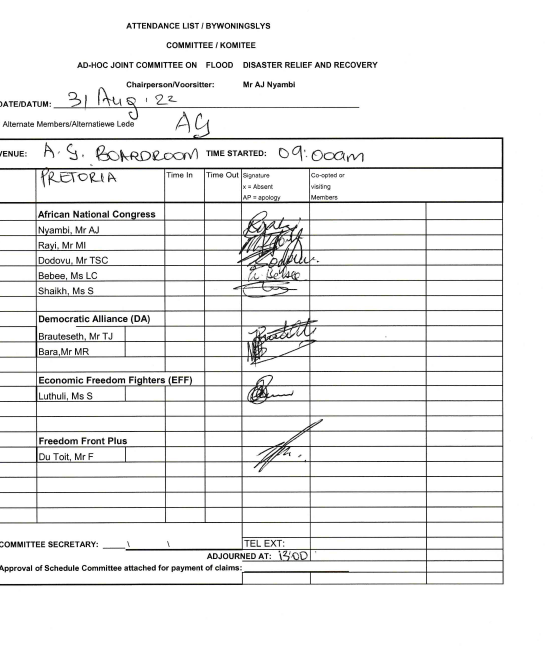 ATTENDANCE LIST / BYWONINGSLYS
COMMITTEE / KOMITEE
AD-HOC JOINT COMMITTEE ON FLOOD DISASTER RELIEF AND RECOVERY
Chairperson/Voorsitter: Mr AJ Nyambi
DATE/DATUM: 31 Aug. 22
Alternate Members/Alternatiewe Lede AG
VENUE: A. G. BOARDROOM TIME STARTED: 09:00am
PRETORIA Time In Time Out Signature Co-opted or
x = Absent visiting
AP = apology Members
African National Congress
Nyambi, Mr AJ
Rayi, Mr MI
Dodovu, Mr TSC
Bebee, Ms LC
Shaikh, Ms S
Democratic Alliance (DA)
Brauteseth, Mr TJ
Bara,Mr MR
Economic Freedom Fighters (EFF)
Luthuli, Ms S
Freedom Front Plus
Du Toit, Mr F
COMMITTEE SECRETARY: ____\ \ TEL EXT:
ADJOURNED AT: 13:00
Approval of Schedule Committee attached for payment of claims: